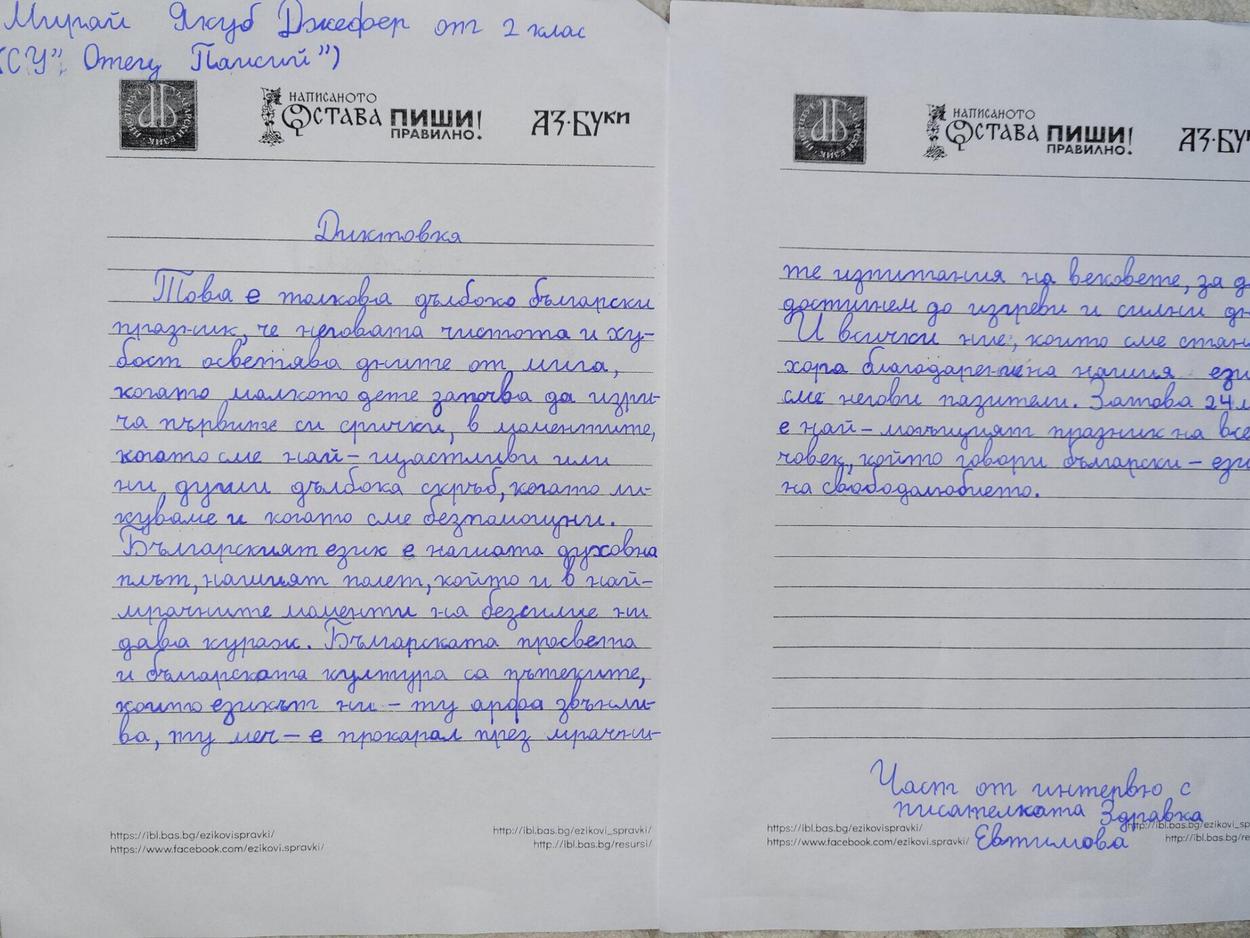 Мирай Якуб Джефер от 2 клас
(СУ "Отец Паисий")
НАПИСАНОТО
ОСТАВА ПИШИ!
ПРАВИЛНО!
АЗ·БУки
Диктовка
Това е толкова дълбоко български
празник, че неговата чистота и ху-
бост осветява дните от мига,
когато малкото дете започва да изри-
ча първите си срички, в моментите,
когато сме най-щастливи или
ни души дълбока скръб, когато ли-
куваме и когато сме безпомощни.
Българският език е нашата духовна
плът, нашият полет, който и в най-
мрачните моменти на безсилие ни
дава кураж. Българската просвета
и българската култура са пътеките,
които езикът ни - ту арфа звънли-
ва, ту меч - е прокарал през мрачни-
https://ibl.bas.bg/ezikovispravki/
https://www.facebook.com/ezikovi.spravki/
http://ibl.bas.bg/ezikovi_spravki/
http://ibl.bas.bg/resursi/
НАПИСАНОТО
ОСТАВА ПИШИ!
ПРАВИЛНО!
АЗ·БУ
те изпитания на вековете, за д
достигнем до изгреви и силни дн
И всички ние, които сме стан
хора благодарение на нашия ези
сме негови пазители. Затова 24 м
е най-мощният празник на все
човек, който говори български - ези
на свободолюбието.
Част от интервю с
писателката Здравка
Евтимова
https://ibl.bas.bg/ezikovispravki/
https://www.facebook.com/ezikovi.spravki/
http://ibl.bas.bg/ezikovi_sp
http://ibl.bas.bg/res